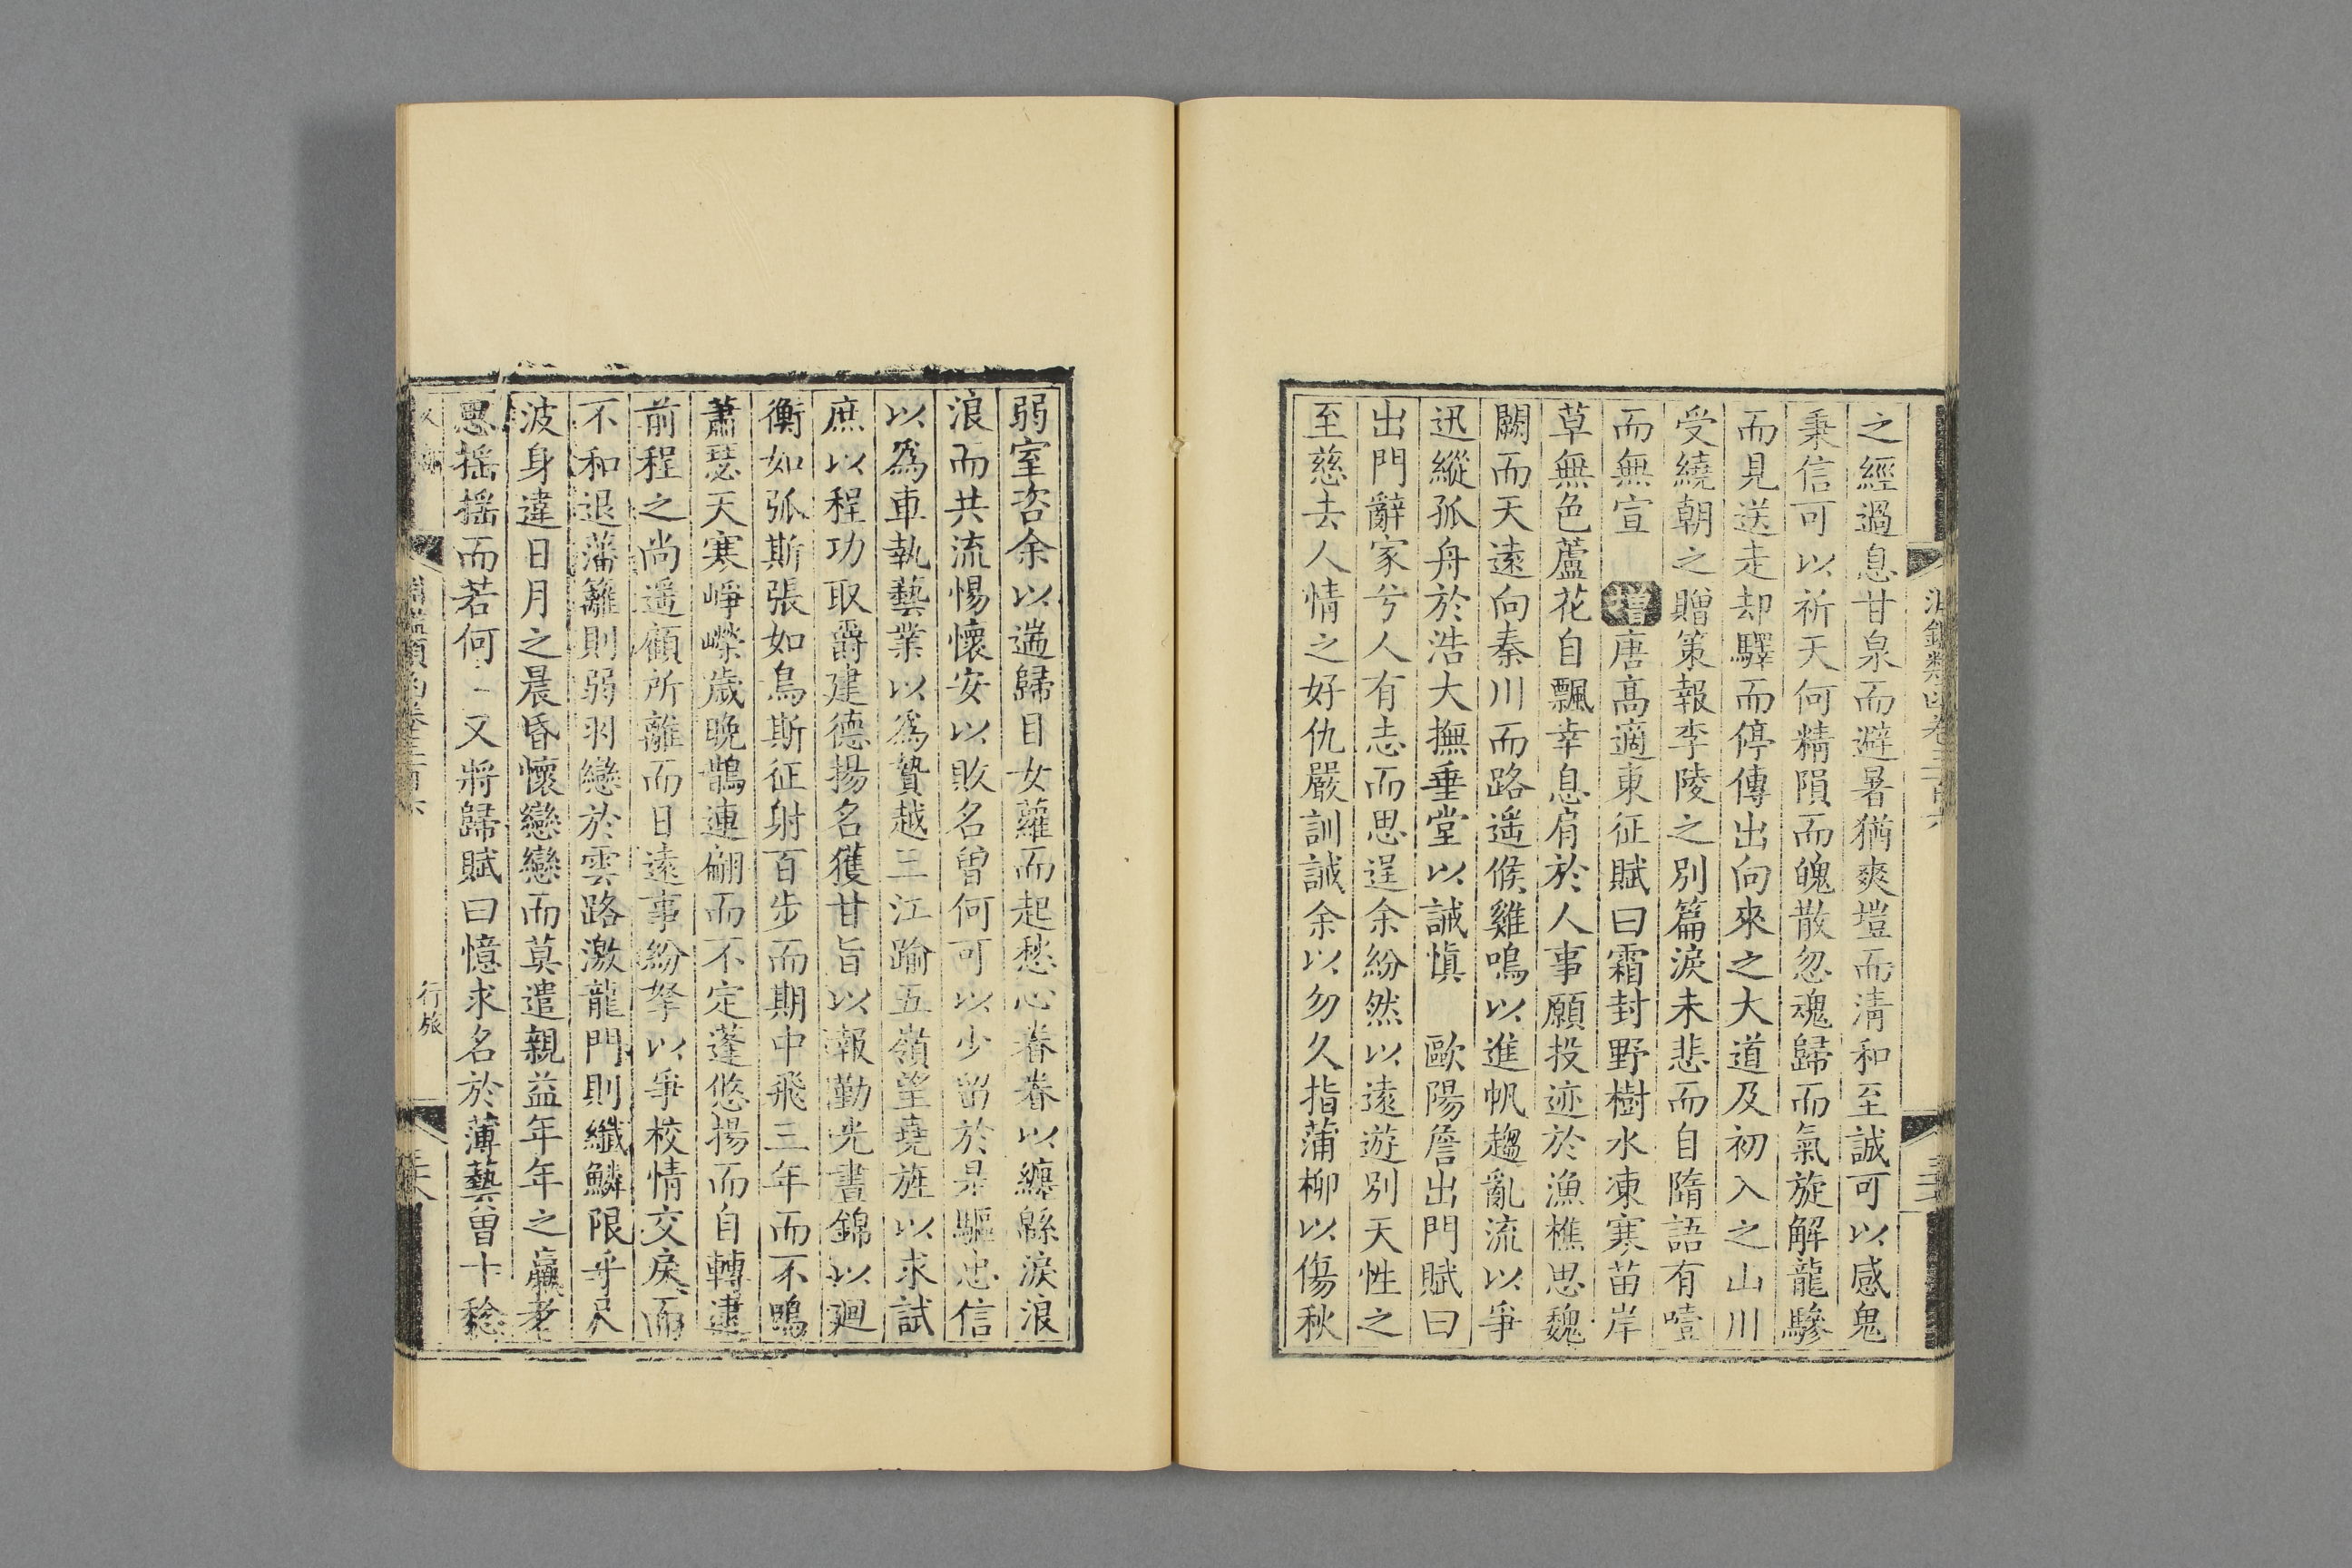 淵鑑類函卷三百六
之經過息甘泉而避暑猶爽塏而淸和至誠可以感鬼
秉信可以祈天何精隕而魄散忽魂歸而氣旋解龍驂
而見送走却驛而停傳出向來之大道及初入之山川
受繞朝之贈策報李陵之別篇淚未悲而自隋語有噎
而無宣 增唐高適東征賦曰霜封野樹水凍寒苗岸
草無色蘆花自飄幸息肩於人事願投迹於漁樵思魏
闕而天遠向秦川而路遥候雞鳴以進帆趨亂流以爭
迅縱孤舟於浩大撫垂堂以誡愼 歐陽詹出門賦曰
出門辭家兮人有志而思逞余紛然以遠遊別天性之
至慈去人情之好仇嚴訓誡余以勿久指蒲柳以傷秋
弱室咨余以遄歸目女蘿而起愁心眷眷以纏緜淚浪
浪而共流惕懷安以敗名曾何可以少留於是驅忠信
以爲車執藝業以爲贄越三江踰五嶺望堯旌以求試
庶以程功取爵建德揚名獲甘旨以報勤光晝錦以廻
衡如弧斯張如鳥斯征射百步而期中飛三年而不鳴
蕭瑟天寒崢嶸歲晚鵲連翩而不定蓬悠揚而自轉逮
前程之尚遥顧所離而日遠事紛拏以爭校情交戾而
不和退藩籬則弱羽戀於雲路激龍門則纖鱗限乎尺
波身違日月之晨昏懷戀戀而莫遣親益年年之羸老
思摇摇而若何 又將歸賦曰憶求名於薄藝曾十稔
行旅